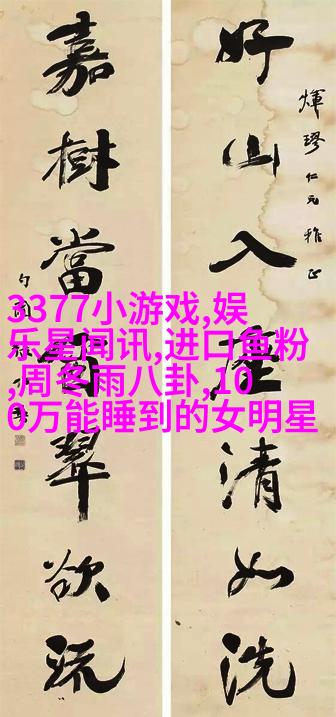 煇璆仁兄雅正
好山入座清如洗
嘉樹當窗翠欲流
3377小游戏,娱
乐星闻讯,进口鱼粉
,周冬雨八卦,10
0万能睡到的女明星